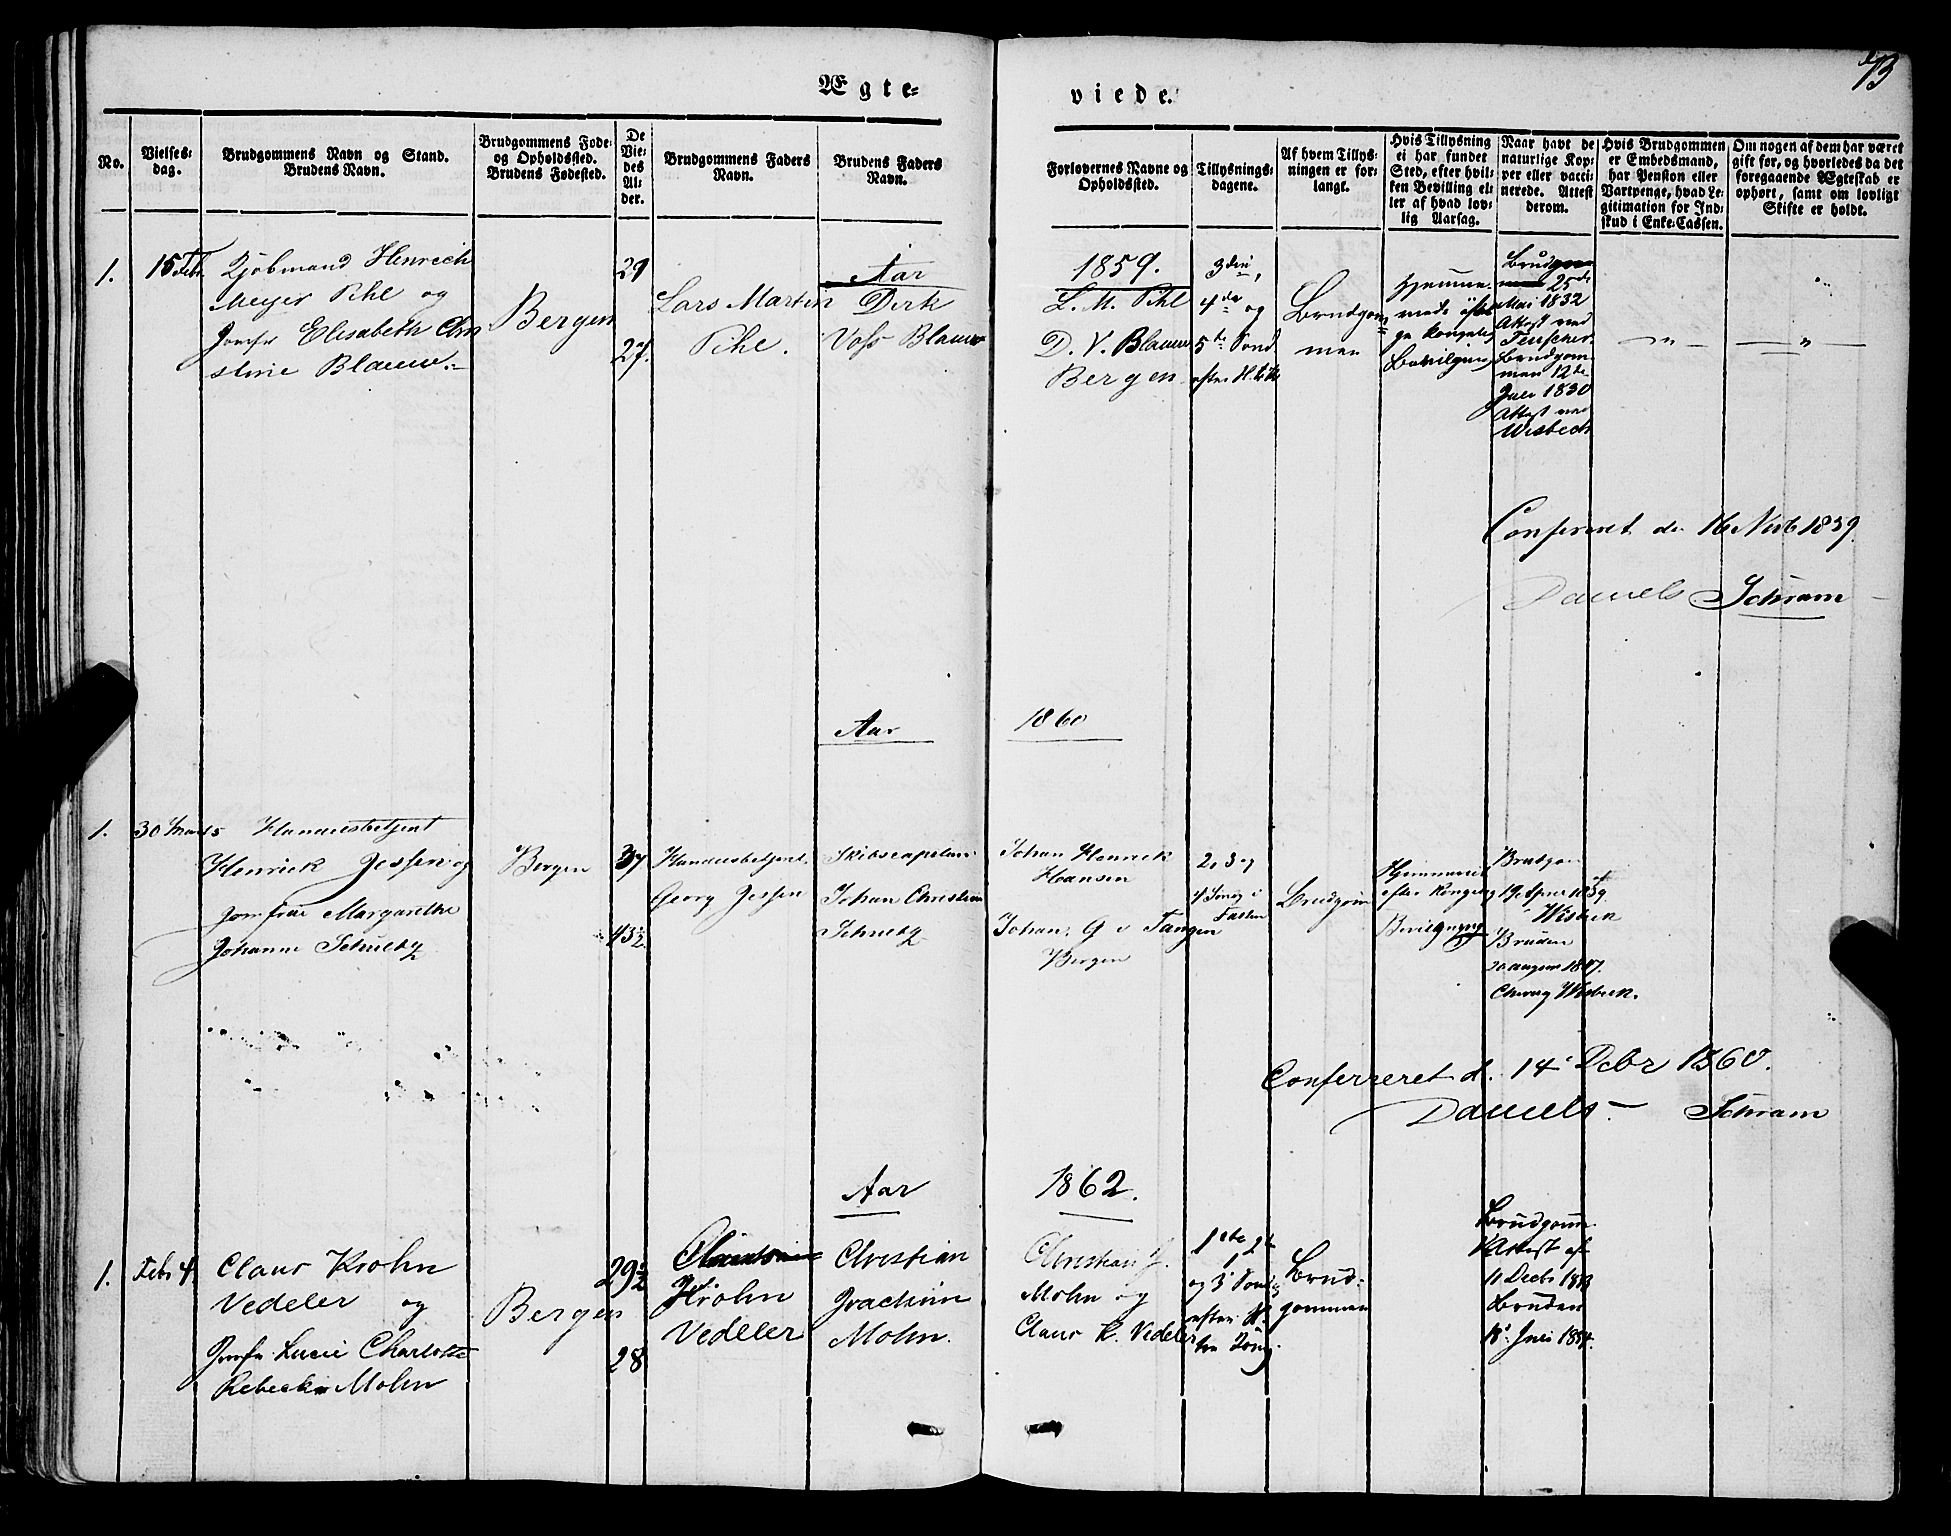 73
Ægte-
viede.
No.
Vielses-
dag.
Brudgommens Navn og Stand.
Brudens Navn.
Brudgommens Føde-
og Opholdssted.
Brudens Fødested.
De
Vie-
des
Al-
der.
Brudgommens Faders
Navn.
Brudens Faders
Navn.
Forlovernes Navne og
Opholdssted.
Tillysnings-
dagene.
Af hvem Tillys-
ningen er for-
langt.
Hvis Tillysning
ei har fundet
Sted, efter hvil-
ken Bevilling el-
ler af hvad lov-
lig Aarsag.
Naar havt de
naturlige Kop-
per eller vacci-
nerede. Attest
derom.
Hvis Brudgommen
er Embedsmand,
har Pension eller
Vartpenge, hvad Le-
gitimation for Ind-
skud i Enke-Cassen.
Om nogen af dem har været
gift før, og hvorledes da det
foregaaende Ægteskab er
ophørt, samt om lovligt
Skifte er holdt.
Aar 1859.
1.
15 Febr
Kjøbmand Henrich
Meyer Pihl og
Jomfr Elisabeth Chri
stine Blauw.
Bergen
29
27.
Lars Marten
Pihl.
Dirk
Voss Blauw
L. M. Pihl
D. V. Blauw
Bergen
3die,
4de og
5te Sønd
efter H. 3 K
Brudgom
men
Hjemme
Brudgom
men 25de
Mai 1832
Attest ved
Brudgom
men 12de
Juli 1830
Attest ved
Wisbech
Conferert de 16 Novb 1859.
Daniels Schram
Aar 1860
1.
30 Marts
Handelsbetjent
Henrick Jessen og
Jomfrue Margarethe
Johanne Schultz
Bergen
37
43½
Handelsbetjent
Georg Jessen
Skibscapitain
Johan Christian
Schultz
Johan Henrick
Hansen
Johan G v Tangen
Bergen
2, 3 og
4 Sønd i
Fasten
Brudgom
Hjemmeviet
efter Kongelig
Bevilgning
Brudgom
19 April 1839 af
Wisbeck
Bruden
Wisbeck.
Conferreret d. 14 Decbr 1860.
Daniels Schram
Aar 1862.
1.
Febr 4
Claus Krohn
Vedeler og
Jomfr Lucie Charlotte
Rebecka Mohn
Bergen
29½
28
Krohn
Vedeler
Christian
Joachim
Mohn.
Christian J.
Mohn og
Claus K. Vedeler
1ste 2de
og 3 Sønd
efter H.
tre Kong.
Brud-
gommen
Brudgom
Attest af
11 Decbr 1833
Bruden
18 Juli 1834.